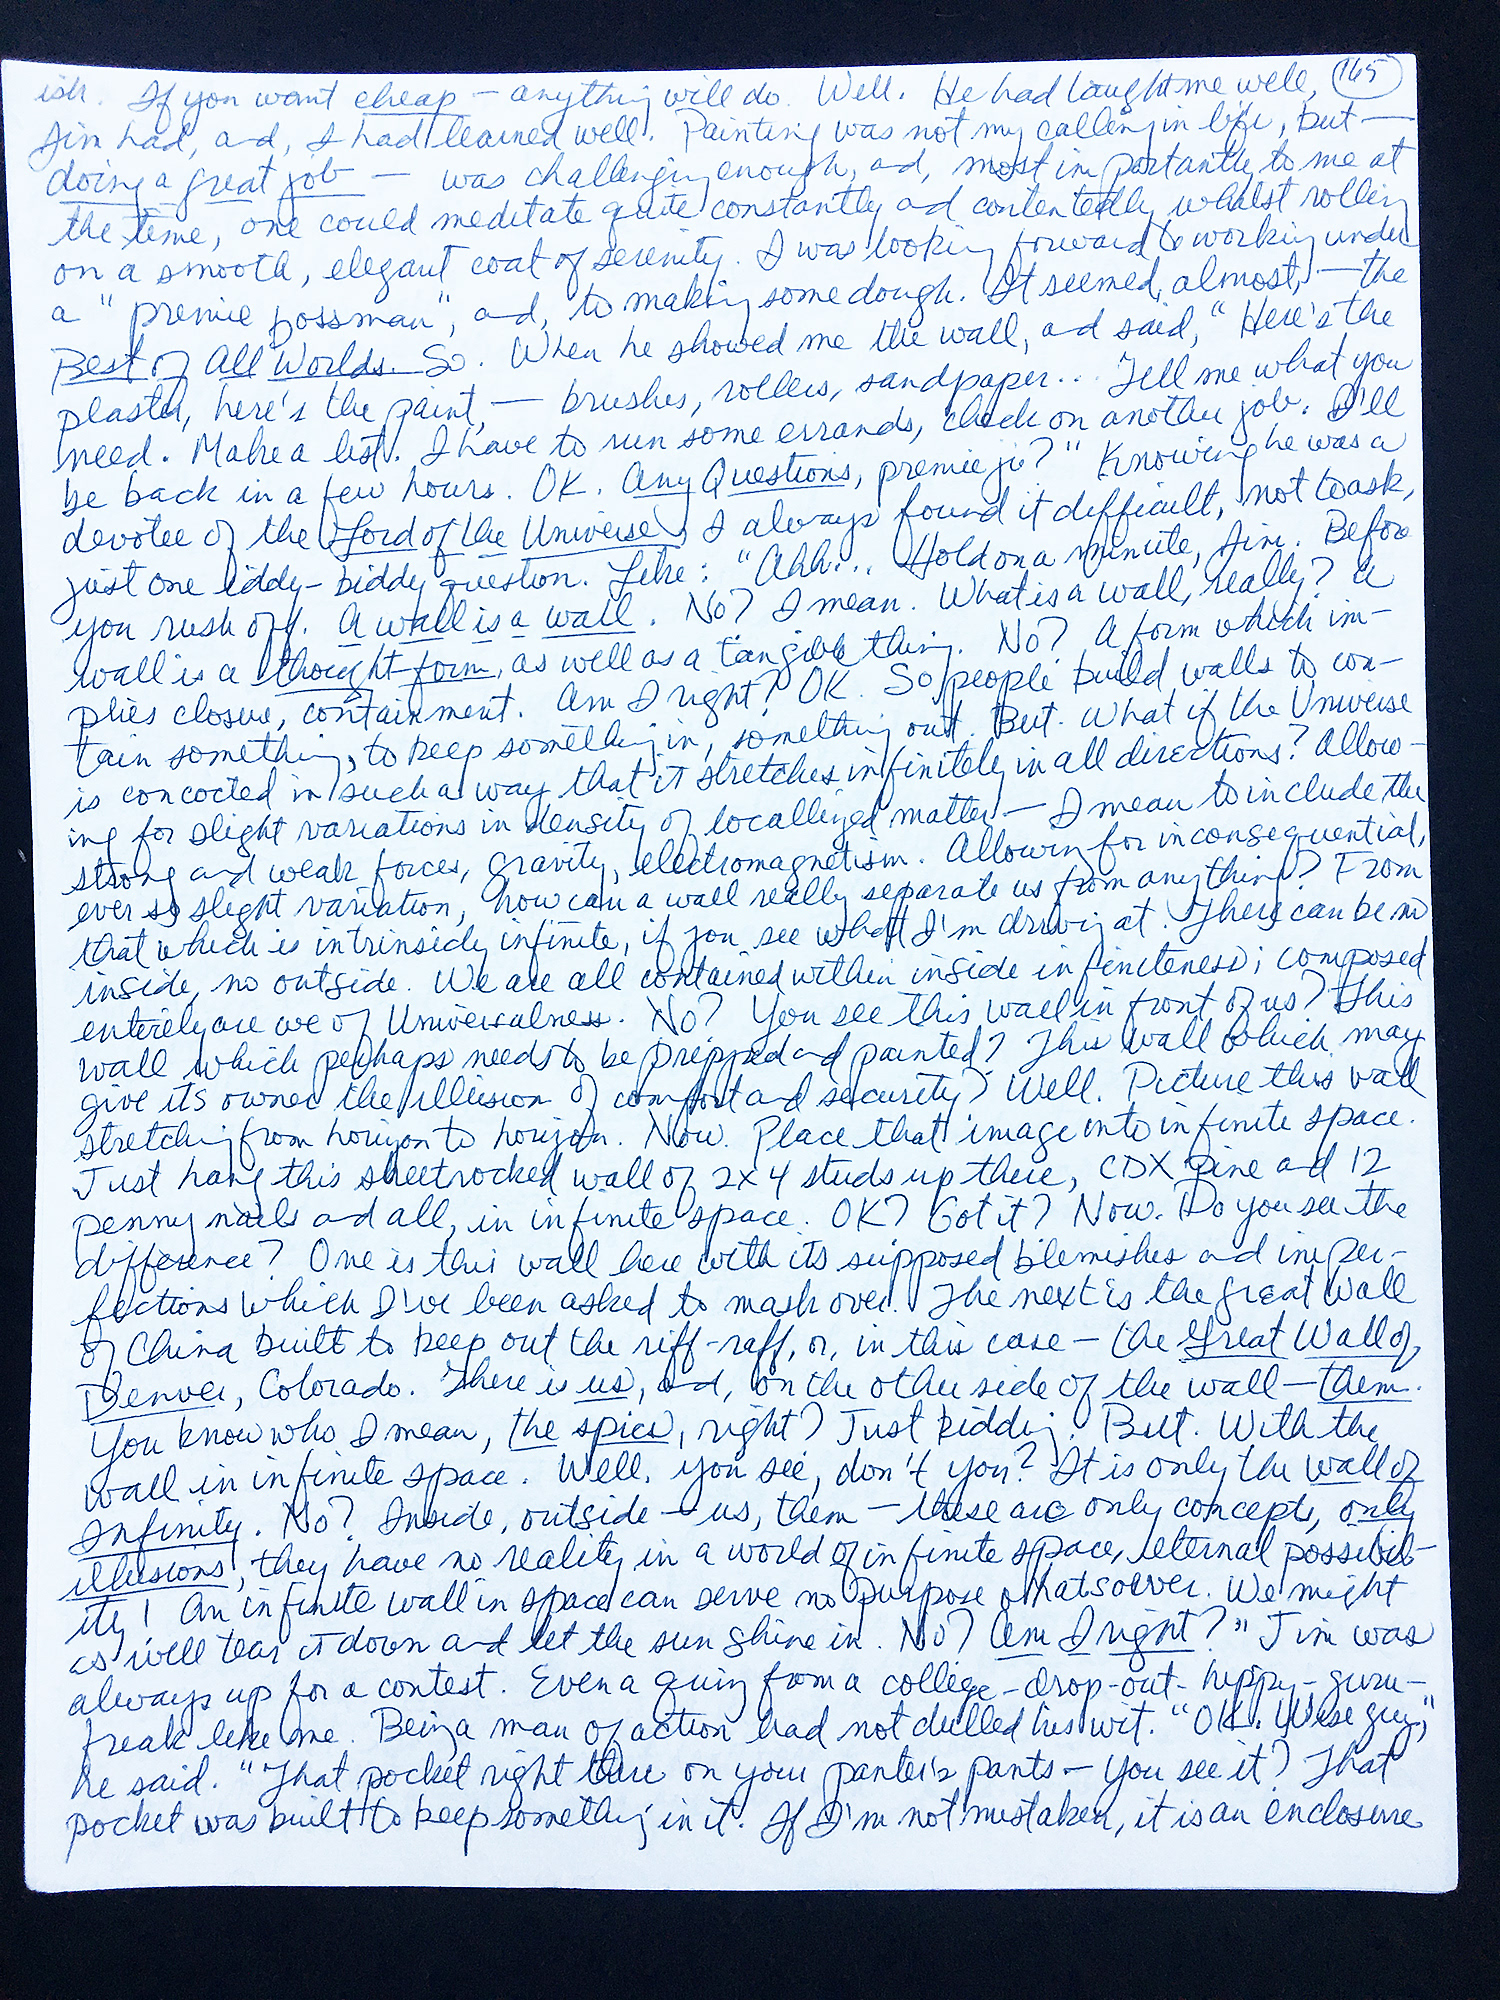 ish. If you want cheap — anything will do. Well. He had taught me well, 165
Jim had, and, I had learned well. Painting was not my calling in life, but —
doing a great job — was challenging enough, and, most importantly to me at
the time, one could meditate quite constantly and contentedly whilst rolling
on a smooth, elegant coat of serenity. I was looking forward to working under
a "premie bossman", and, to making some dough. It seemed, almost, — the
Best of All Worlds. So. When he showed me the wall, and said, "Here's the
plaster, here's the paint, — brushes, rollers, sandpaper... Tell me what you
need. Make a list. I have to run some errands, check on another job. I'll
be back in a few hours. OK. Any Questions, premie ji?" Knowing he was a
devotee of the Lord of the Universe, I always found it difficult, not to ask,
just one iddy-biddy question. Like: "Ahh... Hold on a minute, Jim. Before
you rush off. A wall is a wall. No? I mean. What is a wall, really? A
wall is a thought-form, as well as a tangible thing. No? A form which im-
plies closure, containment. Am I right? OK. So people build walls to con-
tain something, to keep something in, something out. But. What if the Universe
is concocted in such a way that it stretches infinitely in all directions? Allow-
ing for slight variations in density of locallized matter — I mean to include the
strong and weak forces, gravity, electromagnetism. Allowing for inconsequential,
ever so slight variation, how can a wall really separate us from anything? From
that which is intrinsicly infinite, if you see what I'm driving at. There can be no
inside, no outside. We are all contained within inside infiniteness; composed
entirely are we of Universalness. No? You see this wall in front of us? This
wall which perhaps needs to be prepped and painted? This wall which may
give its owner the illusion of comfort and security? Well. Picture this wall
stretching from horizon to horizon. Now. Place that image into infinite space.
Just hang this sheetrocked wall of 2x4 studs up there, CDX pine and 12
penny nails and all, in infinite space. OK? Got it? Now. Do you see the
difference? One is this wall here with its supposed blemishes and imper-
fections which I've been asked to mask over. The next is the great Wall
of China built to keep out the riff-raff, or, in this case — the Great Wall of
Denver, Colorado. There is us, and, on the other side of the wall — them.
You know who I mean, the spics, right? Just kidding. But. With the
wall in infinite space. Well. you see, don't you? It is only the wall of
Infinity. No? Inside, outside — us, them — these are only concepts, only
illusions, they have no reality in a world of infinite space, eternal possibil-
ity! An infinite wall in space can serve no purpose whatsoever. We might
as well tear it down and let the sun shine in. No? Am I right?" Jim was
always up for a contest. Even a quiz from a college-drop-out-hippy-guru-
freak like me. Being a man of action had not dulled his wit. "OK. Wise guy,"
he said. "That pocket right there on your painter's pants — you see it? That
pocket was built to keep something in it. If I'm not mistaken, it is an enclosure